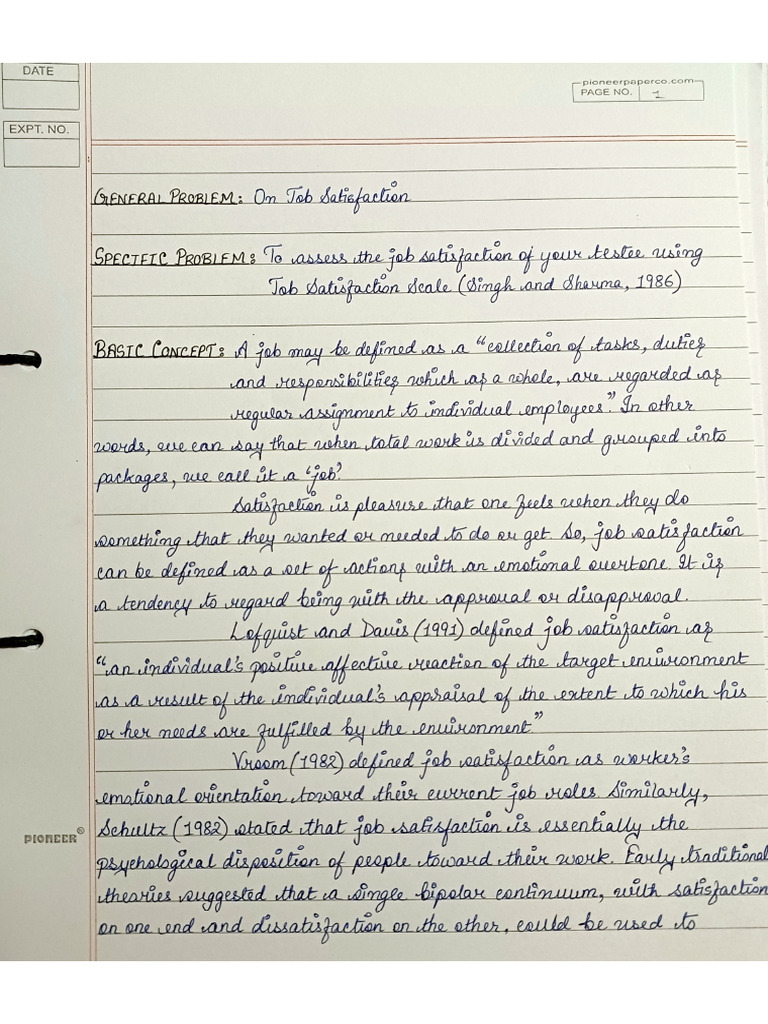 DATE
pioneerpaperco.com
PAGE NO. 1
EXPT. NO.
GENERAL PROBLEM: On Job Satisfaction
SPECIFIC PROBLEM: To assess the job satisfaction of your testee using
Job Satisfaction Scale (Singh and Sharma, 1986)
BASIC CONCEPT: A job may be defined as a "collection of tasks, duties
and responsibilities which as a whole, are regarded as
regular assignment to individual employees." In other
words, we can say that when total work is divided and grouped into
packages, we call it a 'job'.
Satisfaction is pleasure that one feels when they do
something that they wanted or needed to do or get. So, job satisfaction
can be defined as a set of actions with an emotional overtone. It is
a tendency to regard being with the approval or disapproval.
Lofquist and Davis (1991) defined job satisfaction as
"an individual's positive affective reaction of the target environment
as a result of the individual's appraisal of the extent to which his
or her needs are fulfilled by the environment."
Vroom (1982) defined job satisfaction as worker's
emotional orientation toward their current job roles. Similarly,
Schultz (1982) stated that job satisfaction is essentially the
PIONEER®
psychological disposition of people toward their work. Early traditional
theories suggested that a single bipolar continuum, with satisfaction
on one end and dissatisfaction on the other, could be used to